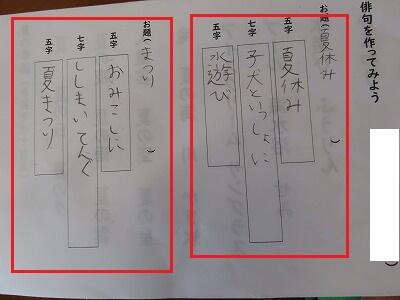 俳句を作ってみよう
お題(夏休み)
五字
夏休み
七字
子犬といっしょに
五字
水遊び
お題(まつり)
五字
おみこしに
七字
ししまいてんぐ
五字
夏まつり